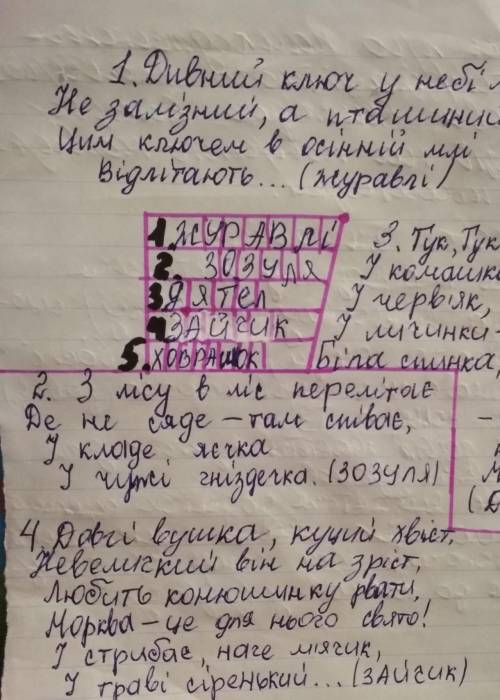 1. Дивний ключ у небі л
Не залізний, а пташиний
Цим ключем в осінній млі
Відлітають... (журавлі)
1. ЖУРАВЛІ
2. ЗОЗУЛЯ
3 ДЯТЕЛ
4 ЗАЙЧИК
5. ХОВРАШОК
3. Тук, Тук
І комашка
І черв'як,
І личинки-
Біла спинка,
2. З лісу в ліс перелітає
Де не сяде – там співає,
І кладе яєчка
І чужі гніздечка. (ЗОЗУЛЯ)
4. Довгі вушка, куций хвіст,
Невеликий він на зріст,
Любить конюшинку рвати,
Морква – це для нього свято!
І стрибає, наче м'ячик,
І траві сіренький... (ЗАЙЧИК)